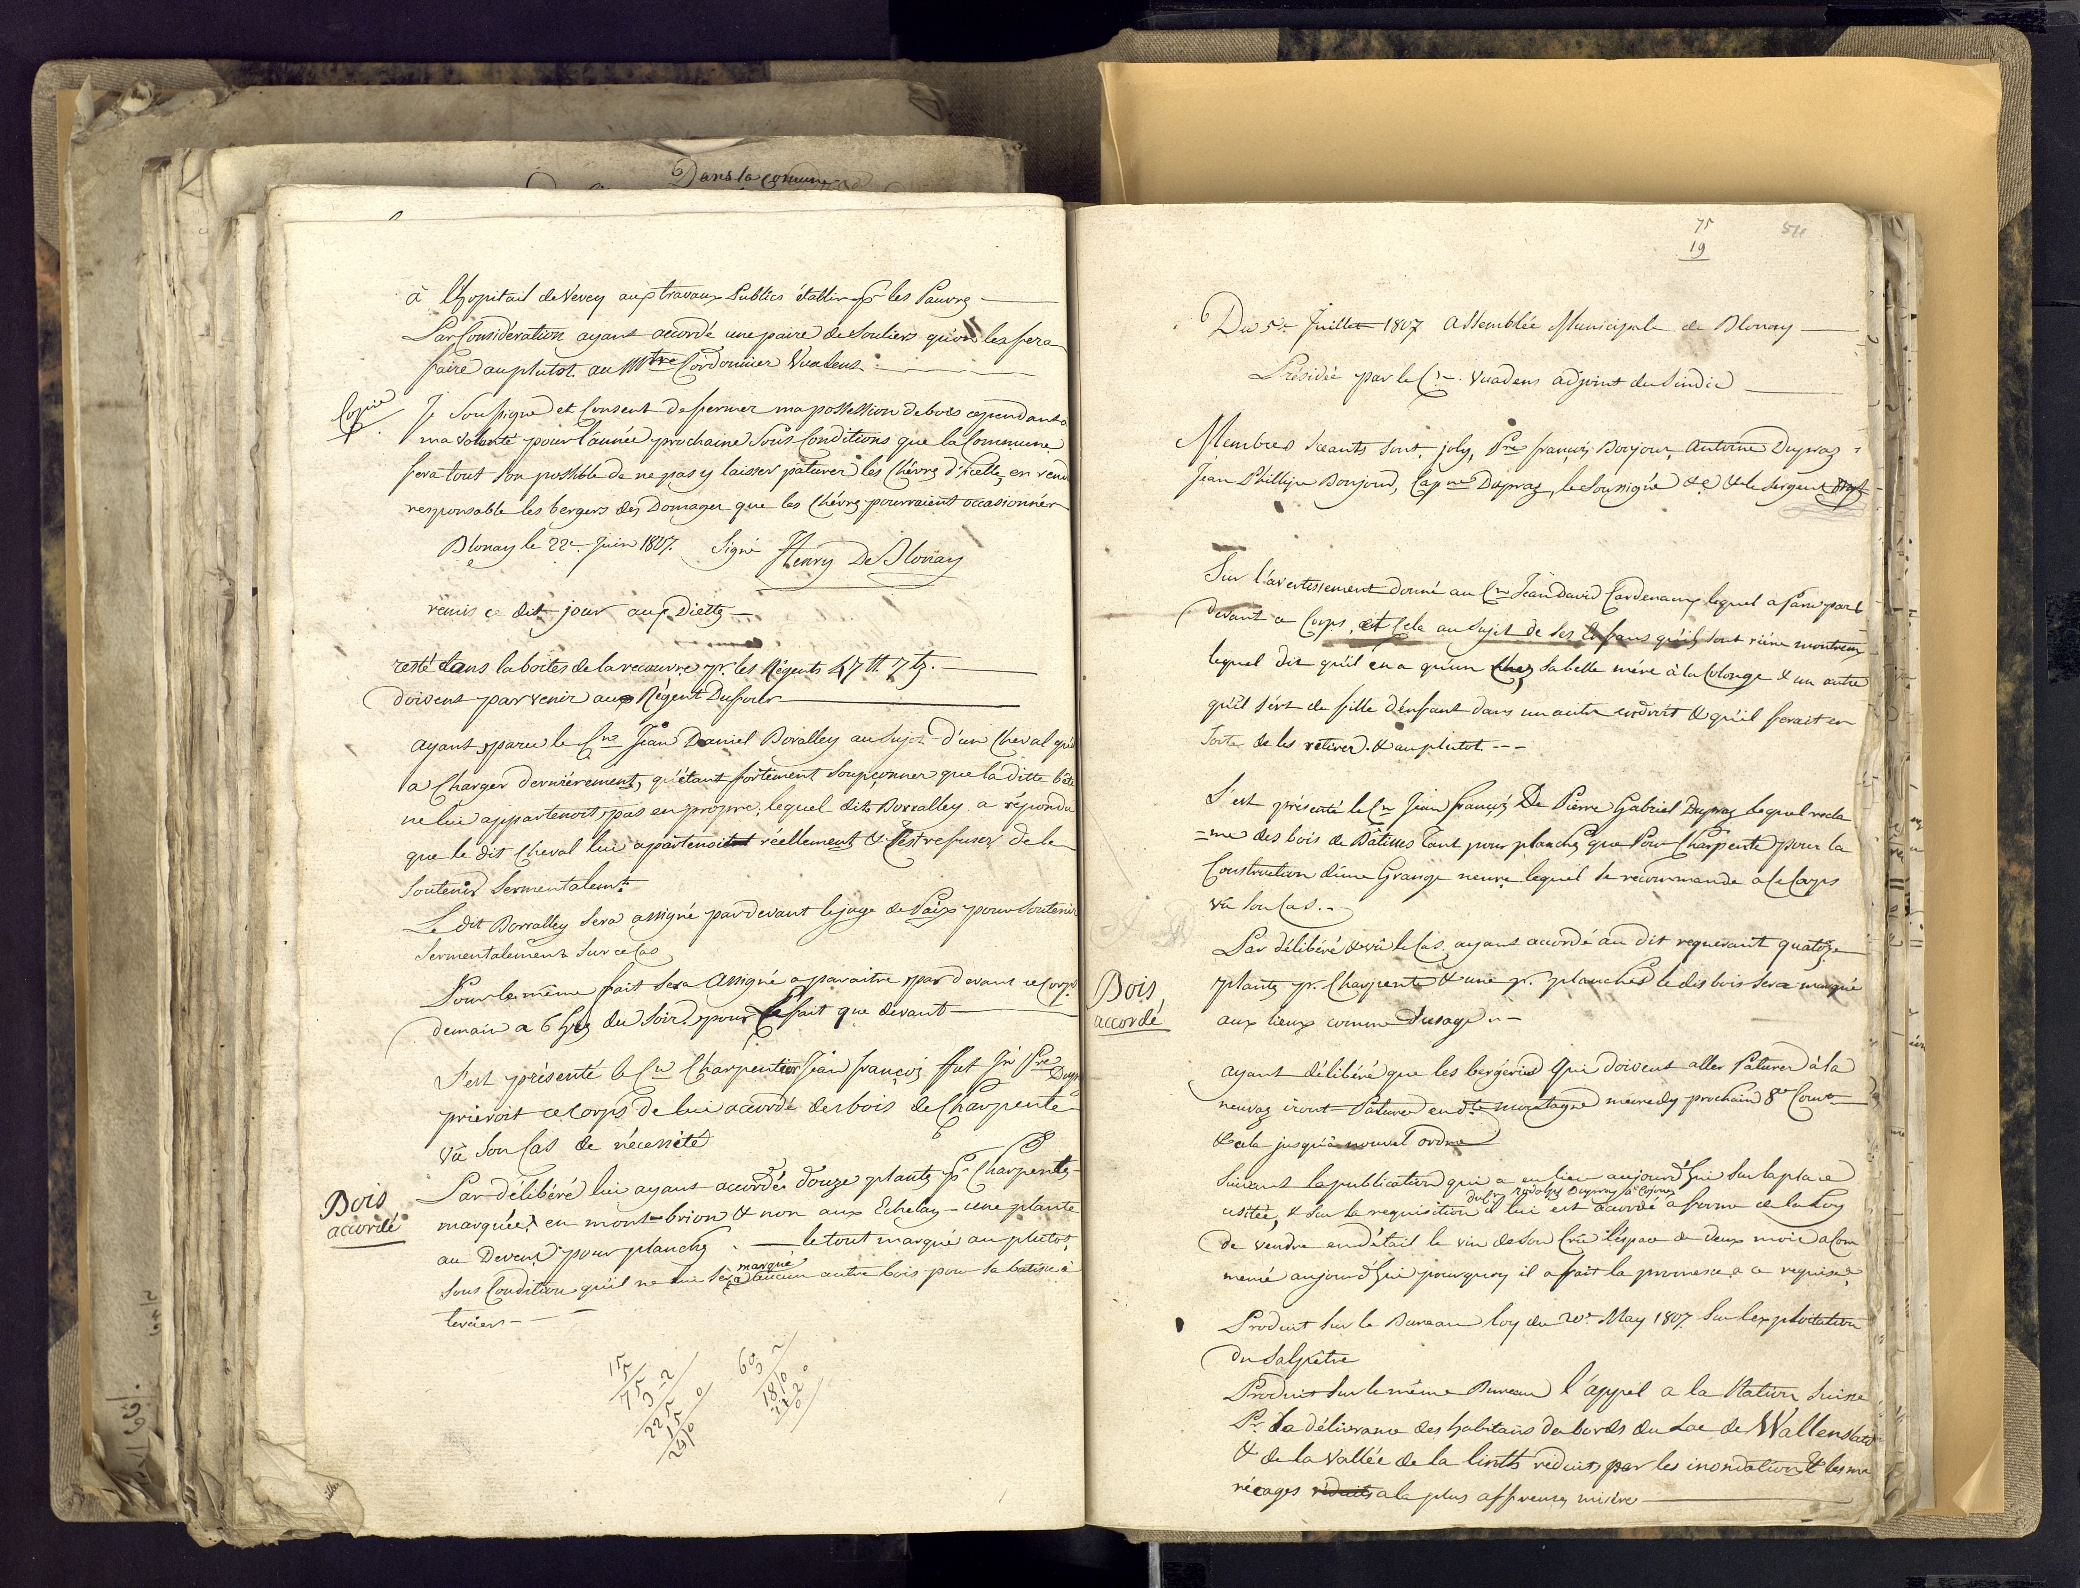 Dans la comune
à l'hopitail de Vevey aux travaux Publics établir pr les Pauvres
Par Considération ayant accordé une paire de Souliers qu'on les fera
faire au plutot au Mtre Cordonnier Vuadens
Copie
Je Soussigné et Consent de fermer ma possession de bois cependant a
ma volonté pour l'année prochaine Sous Conditions que la Commune
fera tout Son possible de ne pas y laisser paturer les Chévres d'icelle, en rend
responsable les bergers des Domages que les Chévres pourraient occasionnér
Blonay le 22e Juin 1807. Signé Henry De Blonay
remis ce dit jour aux Diettes
resté dans la boites de la recouvre pr. les Régents 47 ff 7
doivent parvenir aux Régent Dufour
ayant paru le Cn Jean Daniel Boralley au Sujet d'un Cheval qu'il
a Charger derniérement, qu'étant fortement Soupçonner que la ditte bête
ne lui appartenoit pas en propre, lequel dit Borralley a répondu
que le dit Cheval lui apartenoit réellement & S'est refuser de le
Soutenir Sermentalemt
Le dit Borralley Sera assigné par devant le juge de Paix pour Soutenir
Sermentalement Sur ce Cas
Pour le même fait Sera Assigné a paraitre par devant ce Corps
demain a 6 hres du Soir pour le fait que devant
S'est présenté le Cn Charpentier Jean françois ffut Jn Pre Dupra
prieroit ce Corps de lui accordé des bois de Charpente
vû Son Cas de nécessité
Bois
accordé
Par délibéré lui ayant accordés douze plantes pr Charpentes
marquées en mont-brion & non aux Echelay - une plante
au Devens pour planches - le tout marqué au plutot
marqué
Sous Condition qu'il ne lui Sera aucun autre bois pour Sa batisse à
terciers
15
75
225
15
60
1810
75
19
54
Du 5e Juillet 1807 Assemblée Municipale de Blonay
Présidée par le Cn Vuadens adjoint du Sindic
Membres Séants Sont, joly, Pre françois Bonjour, Antoine Dupraz
Jean Phillipe Bonjour, Capne Dupraz, le Sousigné & le Sergent
Sur l'avertissement donné au Cn Jean David Cardenaux lequel a paru par
devant ce Corps, et Cela au Sujet de Ses Enfans qu'ils Sont riére montreux
lequel dit qu'il en a qu'un chez Sa belle mére à la Cotonge & un autre
qu'il Sert de fille d'enfant dans un autre endroit & qu'il ferait en
Sorte de les retirer & au plutot
S'est présenté le Cn Jean françois De Pierre Gabriel Dupraz lequel recla
=me des bois de Bâtises tant pour planches que Pour Charpente pour la
Construction d'une Grange neuve lequel Se recommande a ce Corps
vû Son Cas
Bois,
accordé
Par délibéré & vû le Cas ayant accordé au dit requerant quatorze
plantes pr. Charpente & une pr. planches le dis bois Sera marqué
aux lieux comme d'usage
ayant délibéré que les bergéries Qui doivent aller Paturer à la
neuvaz iront Paturer en dte montagne mecredy prochain 8e Cour
& cela jusqu'à nouvel ordre
Suivant la publication qui a eu lieu aujourd'hui Sur la place
du Cn Rodolphe Dupraz
usitée, & Sur la requisition à lui est accordé a forme de la Loy
de vendre en détail le vin de Son Crû l'éspace de deux mois a Com
mencé aujourd'hui pourquoy il a fait la promesse a ce requise,
Produit Sur le Bureau loy du 20e May 1807 Sur l'exploitation
du Salpêtre
Produit Sur le même Bureau l'appel a la Nation Suisse
Pr. La délivrance des habitans des bords du Lac de Wallenstat
& de la Vallée de la linth reduits par les inondations & les ma
récages réduits a la plus affreuse misére